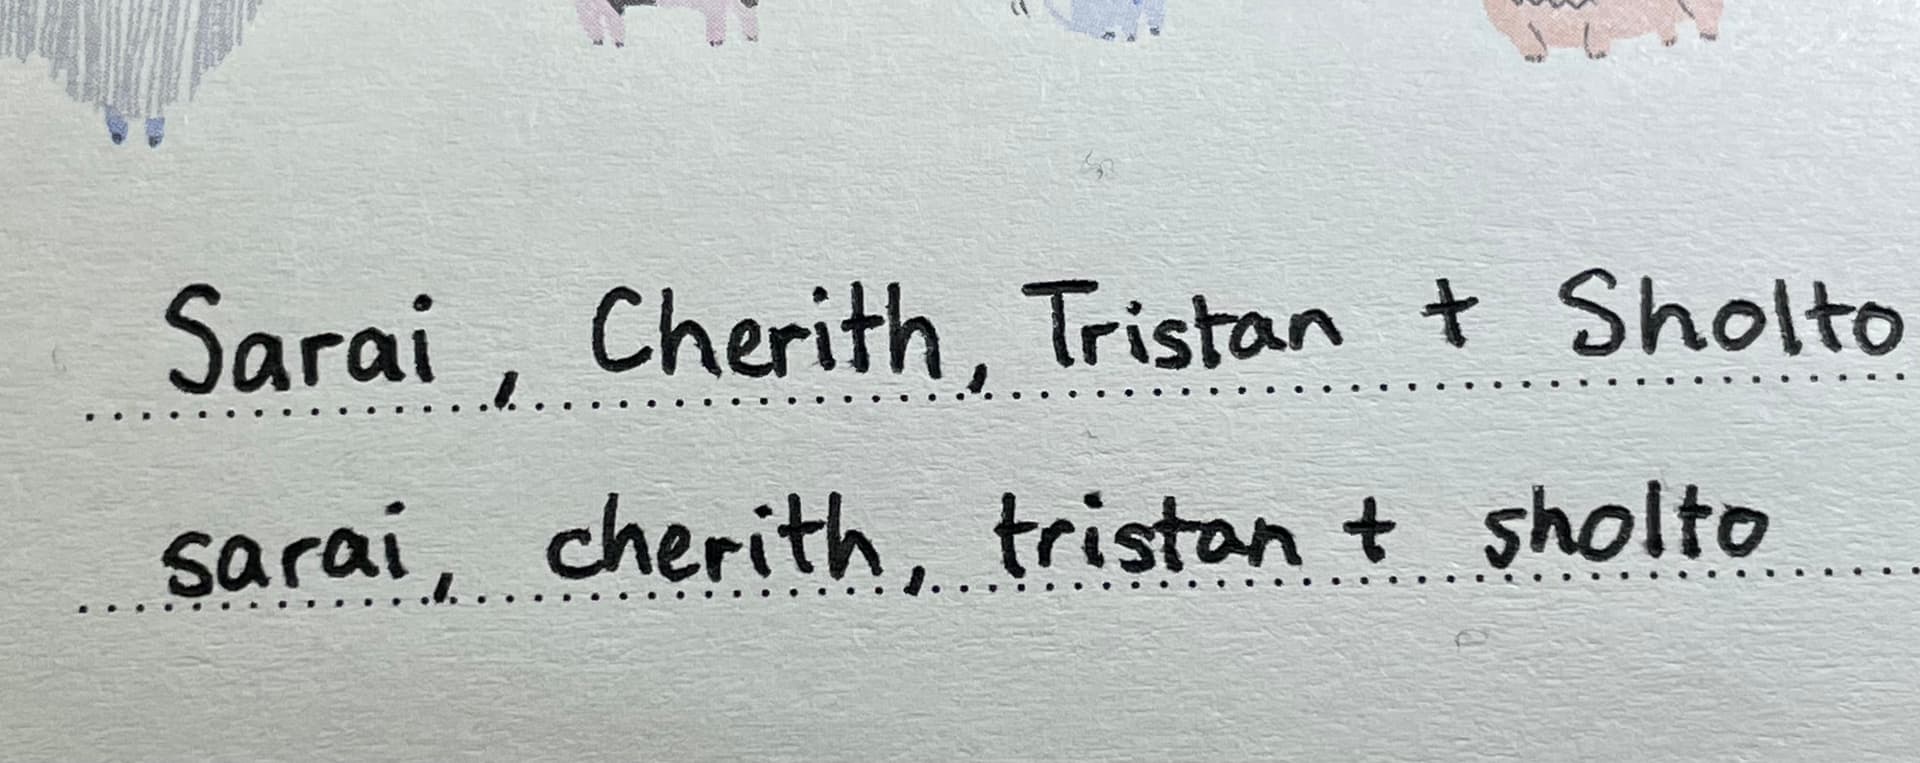 Sarai, Cherith, Tristan + Sholto
sarai, cherith, tristan + sholto